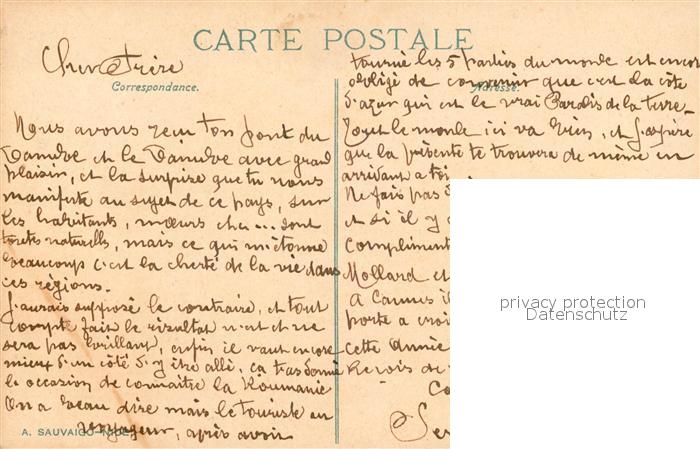 CARTE POSTALE
Cher Frère
Correspondance.
Nous avons reçu ton pont du
Danube et le Danube avec grand
plaisir, et la surprise que tu nous
manifeste au sujet de ce pays, sur
les habitants, mœurs etc... sont
toutes naturelles, mais ce qui m'étonne
beaucoup c'est la cherté de la vie dans
ces régions.
J'aurais supposé le contraire, et tout
compte fait le résultat n'est et ne
sera pas brillant, enfin il vaut encore
mieux d'un côté d'y être allé, ça t'as donné
le occasion de connaitre la Roumanie
On a beau dire mais le touriste ou
voyageur, après avoir
A. SAUVAIGO-NICE
tourné les 5 parties du monde est encore
obligé de convenir que c'est la côte
Adresse.
d'azur qui est le vrai Paradis de la terre.
Tout le monde ici va bien, et j'espère
que la présente te trouvera de même en
arrivant a toi
Ne fais pas
et si il y
Compliment
Mollard et
A Cannes il
porte a croi
cette Année
Revois de
privacy protection
Datenschutz